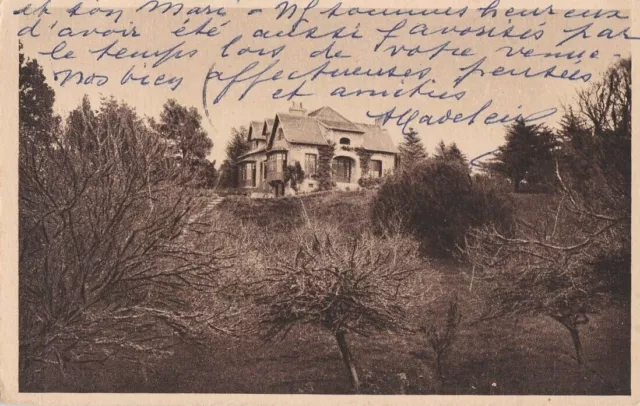 et ton Mari - Nous sommes heureux
d'avoir été aussi favorisés par
le temps lors de votre venue -
Nos bien affectueuses pensées
et amitiés